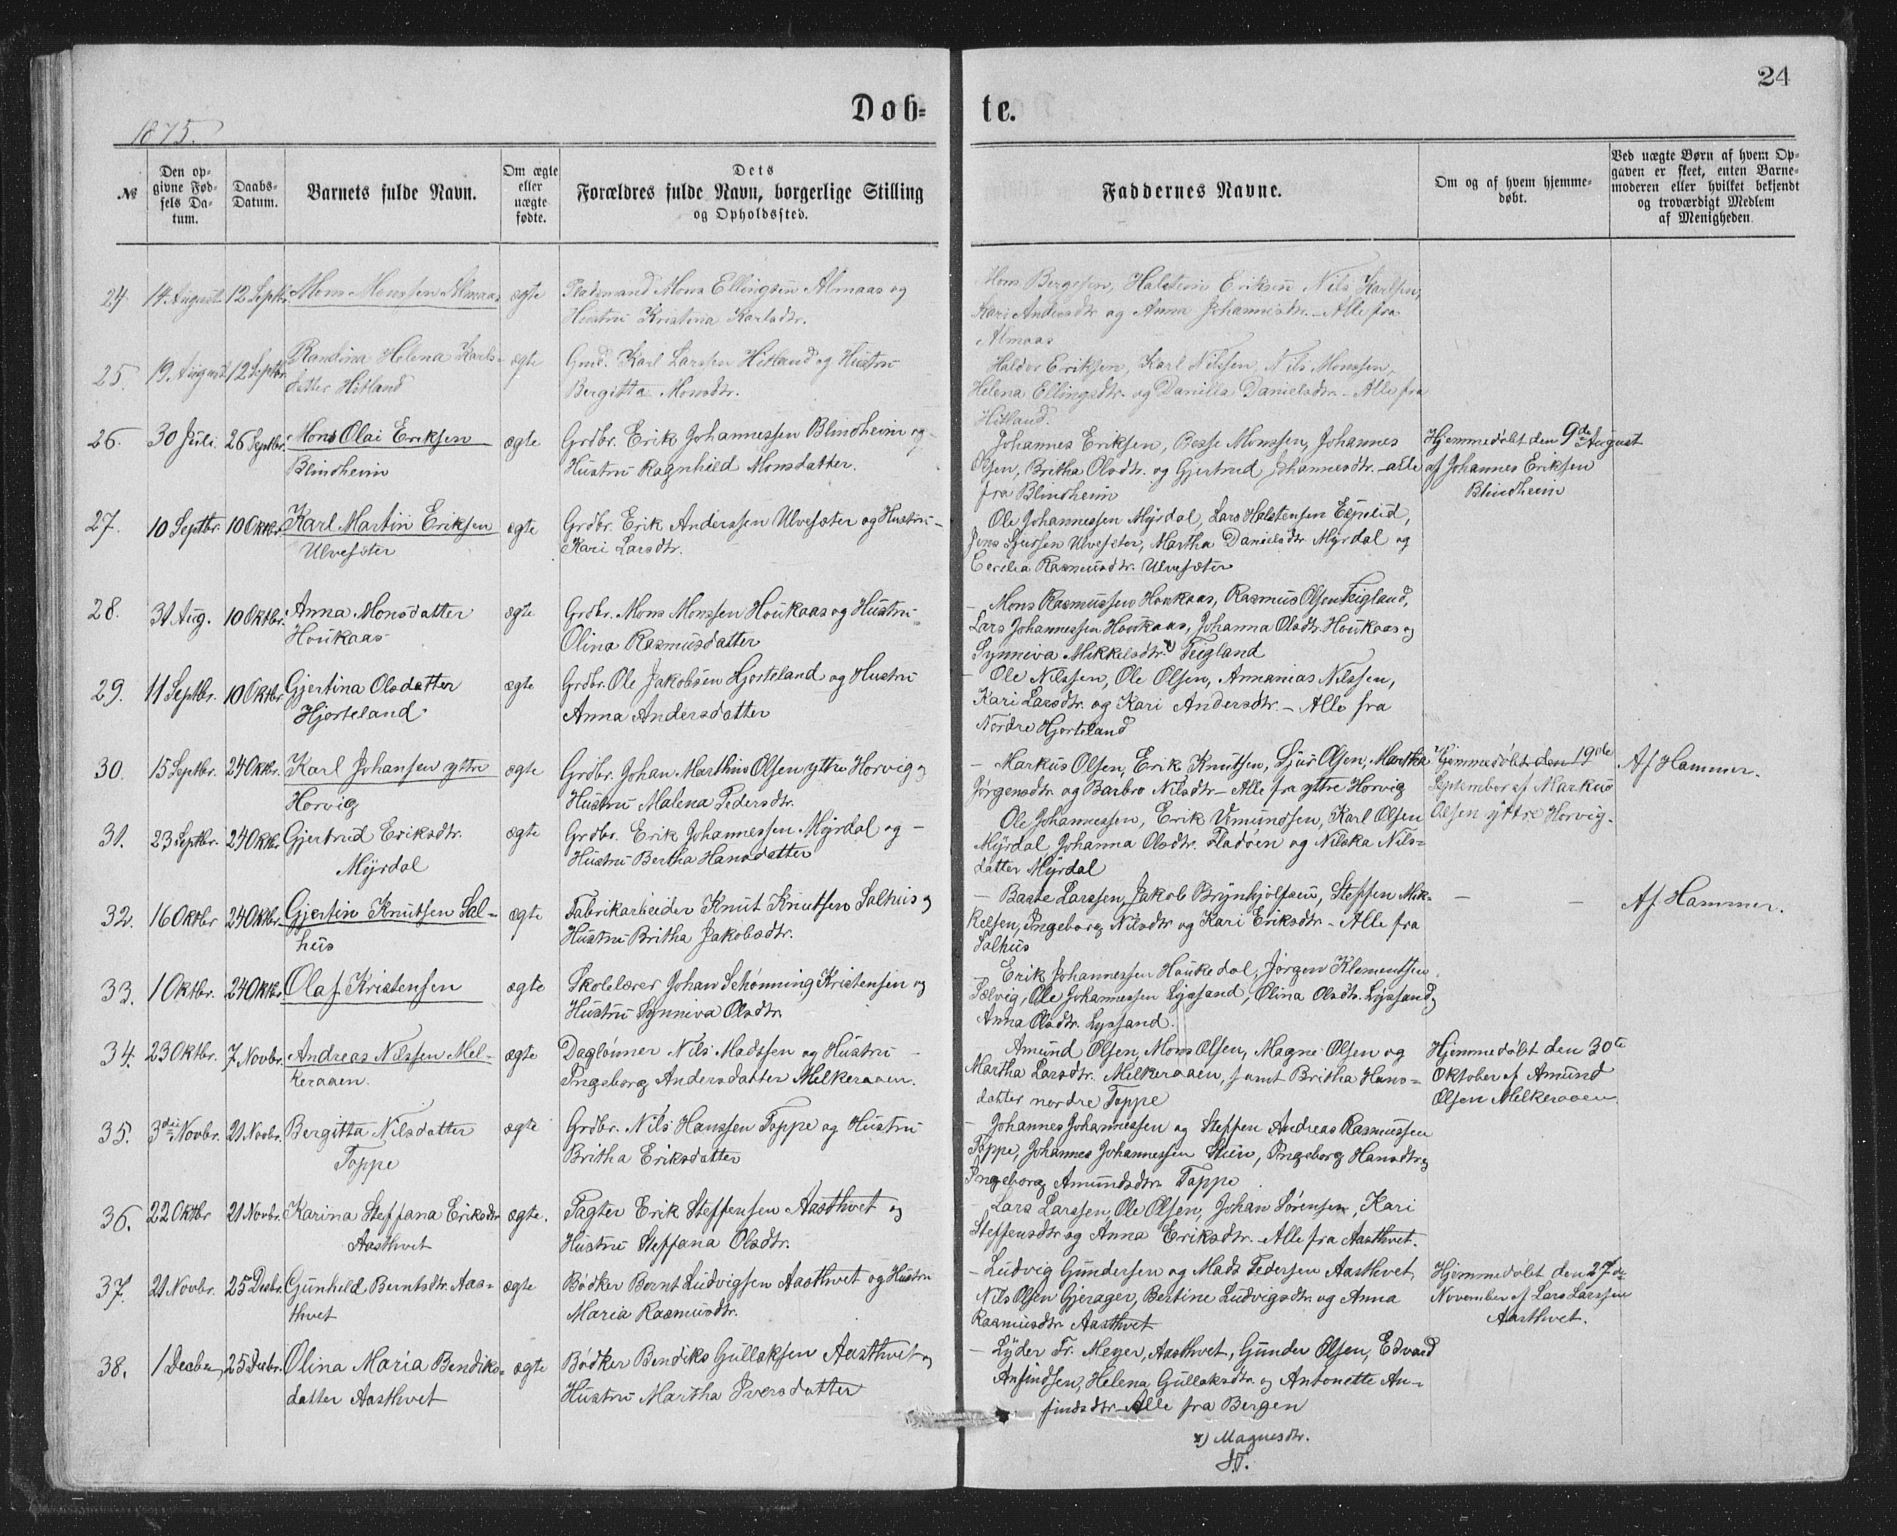 24
Døb-
te.
1875.
№
Den op-
givne Fød-
sels Da-
tum.
Daabs-
Datum.
Barnets fulde Navn.
Om ægte
eller
uægte
fødte.
Dets
Forældres fulde Navn, borgerlige Stilling
og Opholdssted.
Faddernes Navne.
Om og af hvem hjemme-
døbt.
Ved uægte Børn af hvem Op-
gaven er skeet, enten Barne-
moderen eller hvilket bekjendt
og troværdigt Medlem
af Menigheden.
24. 14 August 12 Septbr. Mons Monssen Almaas ægte Pladsmand Mons Ellingsen Almaas og
Hustru Kristina Karlsdtr.
Mons Bergesen, Halstein Eriksen Nils Karlsen,
Kari Andersdtr og Anna Johannesdtr. - Alle fra
Almaas
25. 19 August 12 Septbr. Randina Helena Karls- ægte Gmd. Karl Larssen Hitland og Hustru
datter Hitland Bergitta Monsdtr.
Haldor Eriksen, Karl Nilssen, Nils Monssen,
Helena Ellingsdtr. og Danilla Danielsdtr. - Alle fra
Hitland.
26. 30 Juli 26 Septbr. Mons Olai Eriksen ægte Grdbr. Erik Johannessen Blindheim og
Blindheim Hustru Ragnhild Monsdatter.
Johannes Eriksen, Besse Monssen, Johannes
Olsen, Britha Olsdtr. og Gjertrud Johannesdtr. - alle
fra Blindheim
Hjemmedøbt den 9de August
af Johannes Eriksen
Blindheim
27. 10 Septbr. 10 Oktbr. Karl Martin Eriksen ægte Grdbr. Erik Anderssen Ulvesæter og Hustru -
Ulvesæter Kari Larsdtr.
Ole Johannessen Myrdal, Lars Halstensen Espelid,
Jens Sjurssen Ulvesæter, Martha Danielsdtr Myrdal og
Cecilia Rasmusdtr. Ulvesæter
28. 31 Aug. 10 Oktbr. Anna Monsdatter ægte Grdbr. Mons Monssen Houkaas og Hustru
Houkaas Olina Rasmusdatter
- Mons Rasmussen Houkaas, Rasmus Olsen Teigland,
Lars Johannessen Houkaas, Johanna Olsdtr. Houkaas og
Synneva Mikkelsdtr. x) Teigland
29. 11 Septbr. 10 Oktbr. Gjertina Olsdatter ægte Grdbr. Ole Jakobsen Hjorteland og Hustru
Hjorteland Anna Andersdatter
- Ole Nilssen, Ole Olsen, Annanias Nilssen,
Kari Larsdtr. og Kari Andersdtr. - Alle fra
Nordre Hjorteland
30. 15 Septbr. 24 Oktbr. Karl Johansen ytre ægte Grdbr. Johan Marthin Olsen ytre Horvig og
Horvig Hustru Malena Pedersdtr.
- Markus Olsen, Erik Knutsen, Sjur Olsen, Martha
Jørgensdtr og Barbro Nilsdtr - Alle fra ytre Horvig
Hjemmedøbt den 19de
September af Markus
Olsen ytre Horvig.
Af Hammer.
31. 23 Septbr. 24 Oktbr. Gjertrud Eriksdtr. ægte Grdbr. Erik Johannessen Myrdal og -
Myrdal Hustru Bertha Hansdatter
Ole Johannessen, Erik Vemundsen, Karl Olsen
Myrdal, Johanna Olsdtr. Fladøen og Nilska Nils-
datter Myrdal
32. 16 Oktbr 24 Oktbr. Gjertin Knutsen Sal- ægte Fabrikarbeider Knut Knutsen Salhus og
hus Hustru Britha Jakobsdtr.
- Baste Larssen, Jakob Brynhjolfsen, Steffen Mik-
kelsen, Ingeborg Nilsdtr og Kari Eriksdtr - Alle fra
Salhus
- -
Af Hammer.
33. 1 Oktbr. 24 Oktbr. Olaf Kristensen ægte Skolelærer Johan Schønning Kristensen og
Hustru Synneva Olsdtr.
- Erik Johannessen Houkedal, Jørgen Klementsen
Tælvig, Ole Johannessen Lyssand, Olina Olsdtr. Lyssand og
Anna Olsdtr. Lyssand.
34. 23 Oktbr. 7 Novbr. Andreas Nilssen Mel- ægte Daglønner Nils Madssen og Hustru -
keraaen. Ingeborg Andersdatter Melkeraaen.
Amund Olsen, Mons Olsen, Magne Olsen og
Martha Larsdtr. Melkeraaen, samt Britha Hans-
datter nordre Toppe
Hjemmedøbt den 30te
Oktober af Amund
Olsen Melkeraaen.
35. 3die Novbr. 21 Novbr. Bergitta Nilsdatter ægte Grdbr. Nils Hanssen Toppe og Hustru
Toppe Britha Eriksdatter
- Johannes Johannessen og Steffen Andreas Rasmussen
Toppe, Johannes Johannessen Stien, Ingeborg Hansdtr og
Ingeborg Amundsdtr. Toppe
36. 22 Oktbr 21 Novbr. Karina Steffana Eriksdtr ægte. Fagter Erik Steffensen Aasthvet og
Aasthvet Hustru Steffana Olsdtr.
- Lars Larssen, Ole Olsen, Johan Sørensen, Kari
Steffensdtr og Anna Eriksdtr. - Alle fra Aasthvet.
37. 21 Novbr. 25 Decbr. Gunhild Berntsdtr. Aas- ægte Bødker Bernt Ludvigsen Aasthvet og Hustru
thvet Maria Rasmusdtr.
- Ludvig Gundersen og Mads Pedersen Aasthvet,
Nils Olsen Gjerager, Bertine Ludvigsdtr. og Anna
Rasmusdtr. Aasthvet
Hjemmedøbt den 27de
November af Lars Larssen
Aasthvet.
38. 1 Decber 25 Decbr. Olina Maria Bendiks- ægte Bødker Bendiks Gullaksen Aasthvet og
datter Aasthvet Hustru Martha Iversdatter
- Lyder Fr. Meyer, Aasthvet, Gunder Olsen, Edvard
Anfindsen, Helena Gullaksdtr. og Antonette An-
findsdtr. - Alle fra Bergen
x) Magnesdtr.